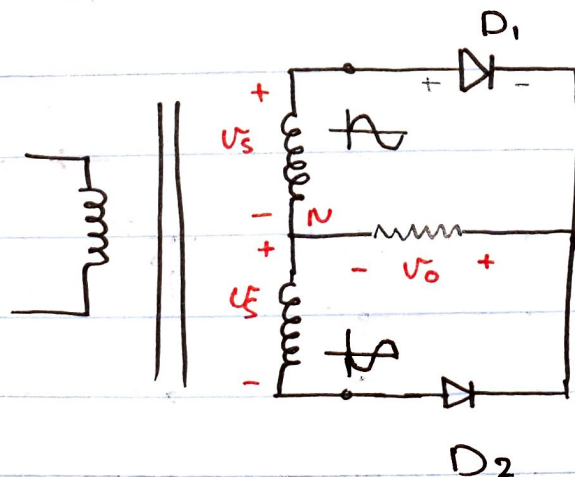 D1
+ -
+
Vs
- N
+
- Vo +
Vs
-
D2